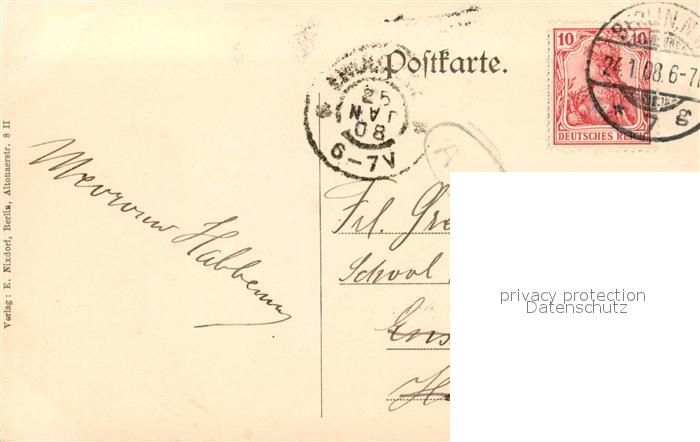 Postkarte.
10 10
DEUTSCHES REICH
BERLIN.N.
24.1.08.6-7
* 7 g
25
JAN
08
6-7V
A
Mevrouw Habbema
Frl. Gre
School
Ens
H
privacy protection
Datenschutz
Verlag: E. Nixdorf, Berlin, Altonaerstr. 8 II